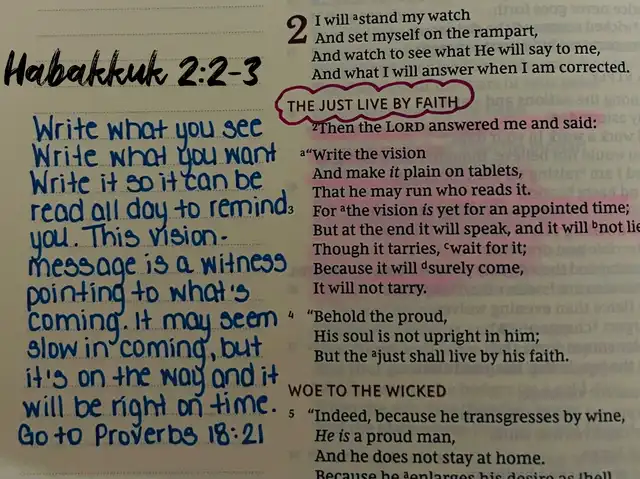 Habakkuk 2:2-3
Write what you see
Write what you want
Write it so it can be
read all day to remind
you. This vision-
message is a witness
pointing to what's
coming. It may seem
slow in coming, but
it's on the way and it
will be right on time.
Go to Proverbs 18:21
2 I will ᵃstand my watch
And set myself on the rampart,
And watch to see what He will say to me,
And what I will answer when I am corrected.
THE JUST LIVE BY FAITH
²Then the LORD answered me and said:
ᵃ“Write the vision
And make it plain on tablets,
That he may run who reads it.
3 For ᵃthe vision is yet for an appointed time;
But at the end it will speak, and it will ᵇnot lie
Though it tarries, ᶜwait for it;
Because it will ᵈsurely come,
It will not tarry.
4 “Behold the proud,
His soul is not upright in him;
But the ᵃjust shall live by his faith.
WOE TO THE WICKED
5 “Indeed, because he transgresses by wine,
He is a proud man,
And he does not stay at home.
Because he ᵃenlarges his desire as hell